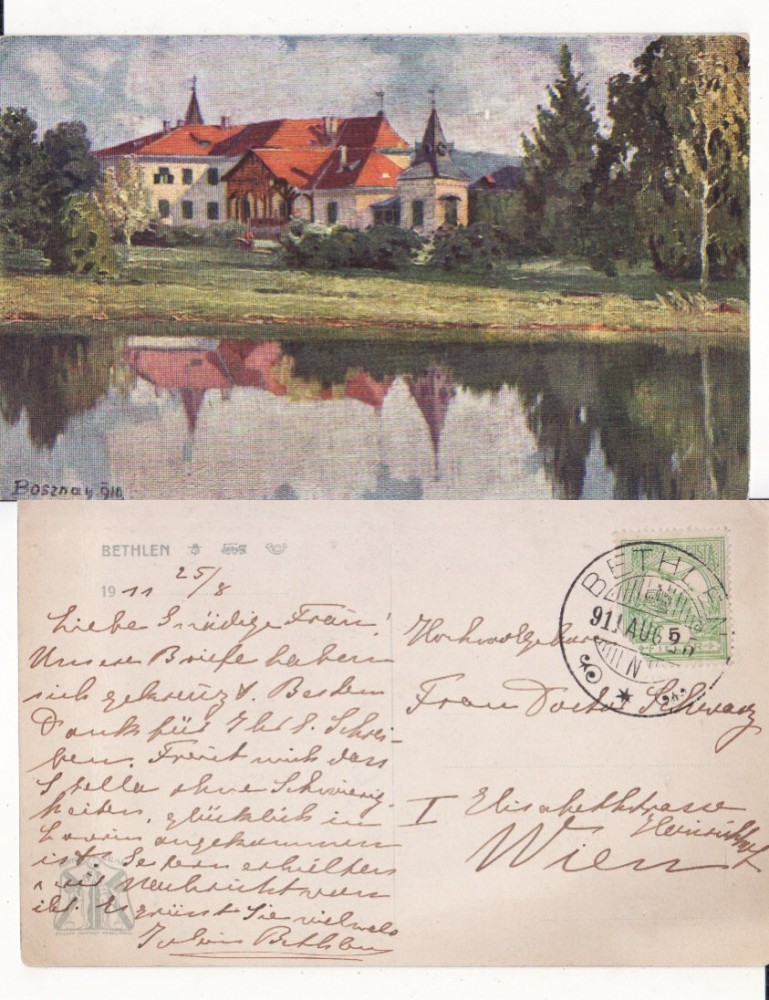 Bosznay 910.
BETHLEN
1911 25/8
Liebe Gnädige Frau!
Unsere Briefe haben
sich gekreuzt. Besten
Dank für Ihr l. Schrei-
ben. Freut mich dass
Stella ohne Schwierig-
keiten, glücklich in
angekommen
ist. erhielten
wir Nachricht von
ihr. Es grüsst Sie vielmals
Bethlen
Hochwolgeboren
Frau Doctor Schwarz
I Elisabethstrasse
Heinrichhof
Wien
BETHLEN
911 AUG
5